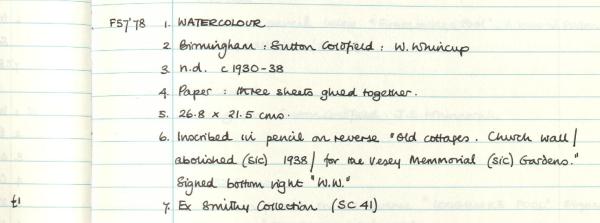 F57'78 1. WATERCOLOUR
2. Birmingham : Sutton Coldfield : W. Whincup
3. n.d. c 1930-38
4. Paper : three sheets glued together.
5. 26.8 x 21.5 cms.
6. Inscribed in pencil on reverse "Old cottages. Church Wall /
abolished (sic) 1938 / for the Vesey Memmorial (sic) Gardens."
Signed bottom right "W.W."
£1 7. Ex Smithy Collection (SC 41)